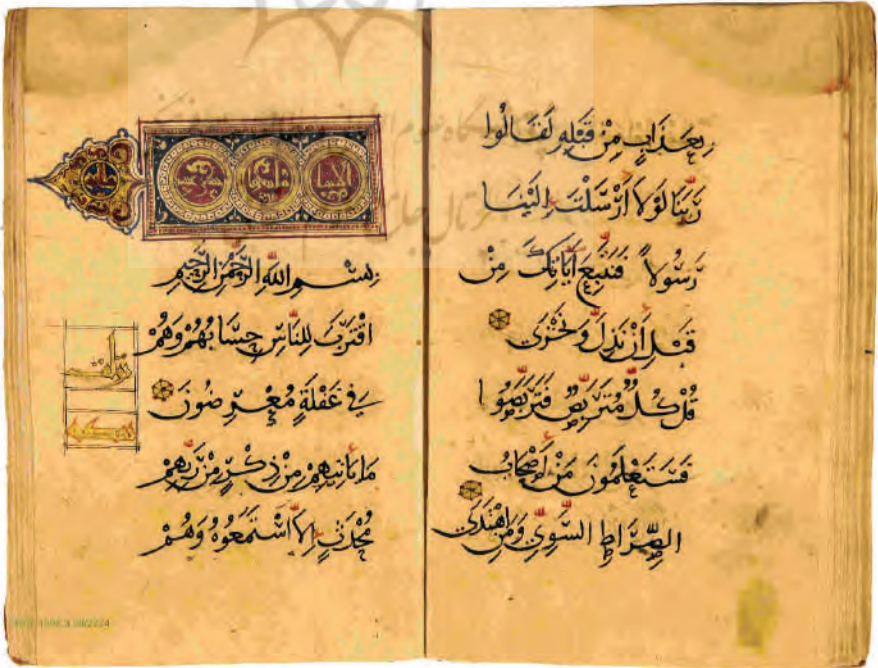 بِعَذَابٍ مِنْ قَبْلِهِ لَقَالُوا
رَبَّنَا لَوْلَا أَرْسَلْتَ إِلَيْنَا
رَسُولًا فَنَتَّبِعَ آيَاتِكَ مِنْ
قَبْلِ أَنْ نَذِلَّ وَنَخْزَى
قُلْ كُلٌّ مُتَرَبِّصٌ فَتَرَبَّصُوا
فَسَتَعْلَمُونَ مَنْ أَصْحَابُ
الصِّرَاطِ السَّوِيِّ وَمَنِ اهْتَدَى
بِسْمِ اللَّهِ الرَّحْمَنِ الرَّحِيمِ
اقْتَرَبَ لِلنَّاسِ حِسَابُهُمْ وَهُمْ
فِي غَفْلَةٍ مُعْرِضُونَ
مَا يَأْتِيهِمْ مِنْ ذِكْرٍ مِنْ رَبِّهِمْ
مُحْدَثٍ إِلَّا اسْتَمَعُوهُ وَهُمْ